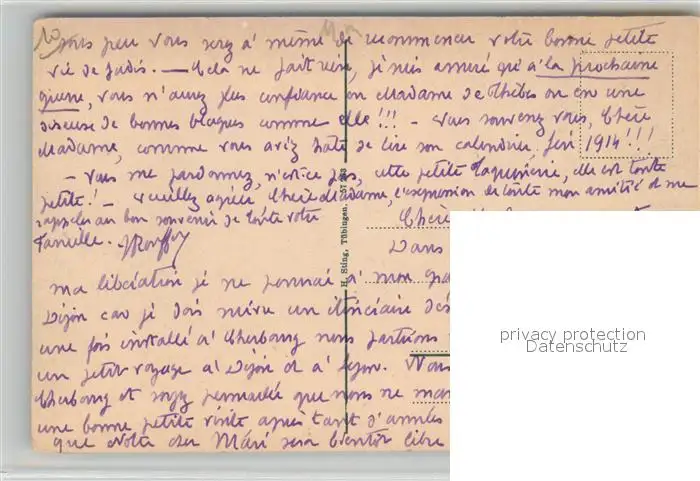 sous peu vous serez à même de recommencer votre bonne petite
vie de jadis. — Cela ne fait rien, je suis assuré qu'à la prochaine
guerre, vous n'aurez plus confiance en Madame de Thèbes ou en une
diseuse de bonnes blagues comme elle!!! - Vous souvenez vous, Chère
Madame, comme vous aviez hâte de lire son calendrier 1914!!!
- Vous me pardonnez, n'est-ce pas, cette petite taquinerie, elle est toute
petite! - Veuillez agréer Chère Madame, l'expression de toute mon amitié et me
rappeler au bon souvenir de toute votre
famille.
Chère
Dans
ma libération je ne pourrai à mon
Dijon car je dois suivre un itinéraire
une fois installé à Cherbourg nous partirons
un petit voyage à Dijon et à Lyon. Vous
Cherbourg et soyez persuadée que nous ne
une bonne petite visite après tant d'années
que votre cher Mari sera bientôt libre
H. Sting, Tübingen.
privacy protection
Datenschutz